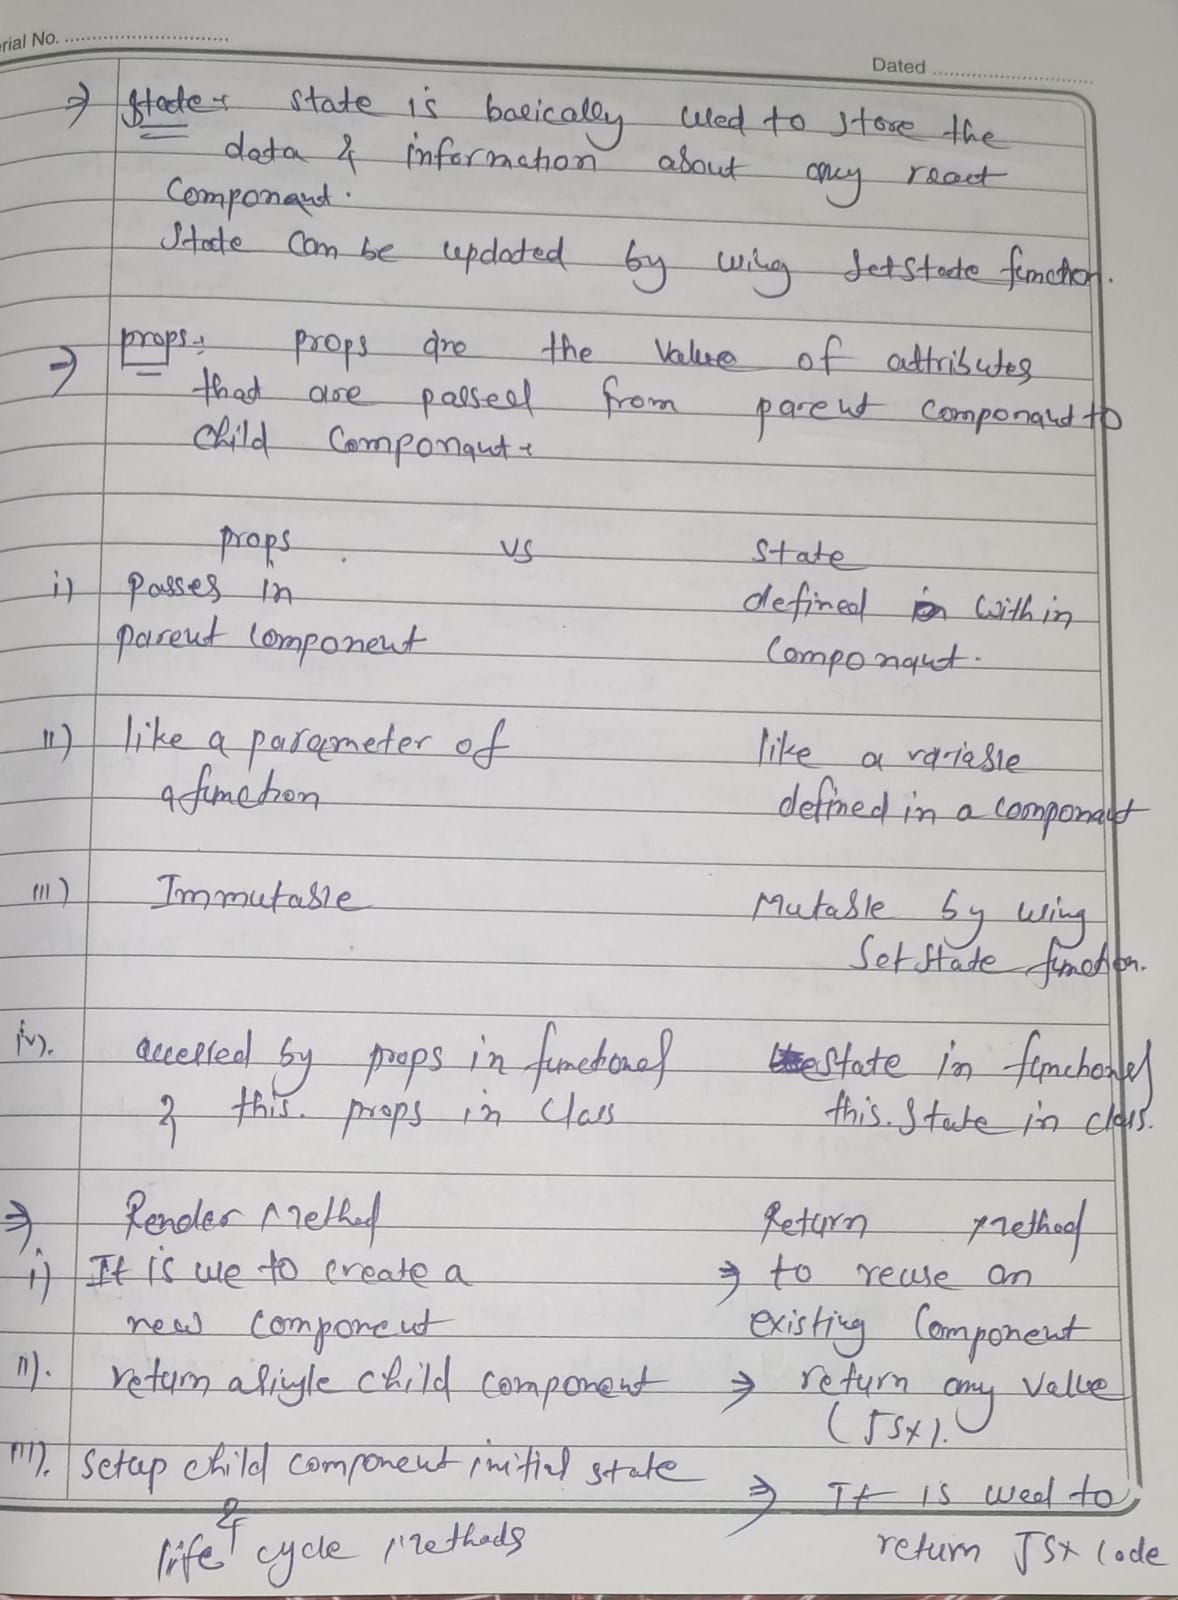 Serial No. ..............................
Dated ..............................
⇒ State:- state is basically used to store the
data & information about any react
componant.
State can be updated by using setState function.
⇒ props:- props are the value of attributes
that are passed from parent componant to
child componant:
props vs state
i) Passes in defined within
parent component componant.
ii) like a parameter of like a variable
a function defined in a componant
iii) Immutable Mutable by using
SetState function.
iv). accessed by props in functional state in functional
& this.props in class this.state in class.
⇒ Render Method Return method
i) It is use to create a ⇒ to reuse an
new component existing component
ii). return a single child component ⇒ return any value
(JSX).
iii). setup child component initial state ⇒ It is used to
& life cycle methods return JSX code